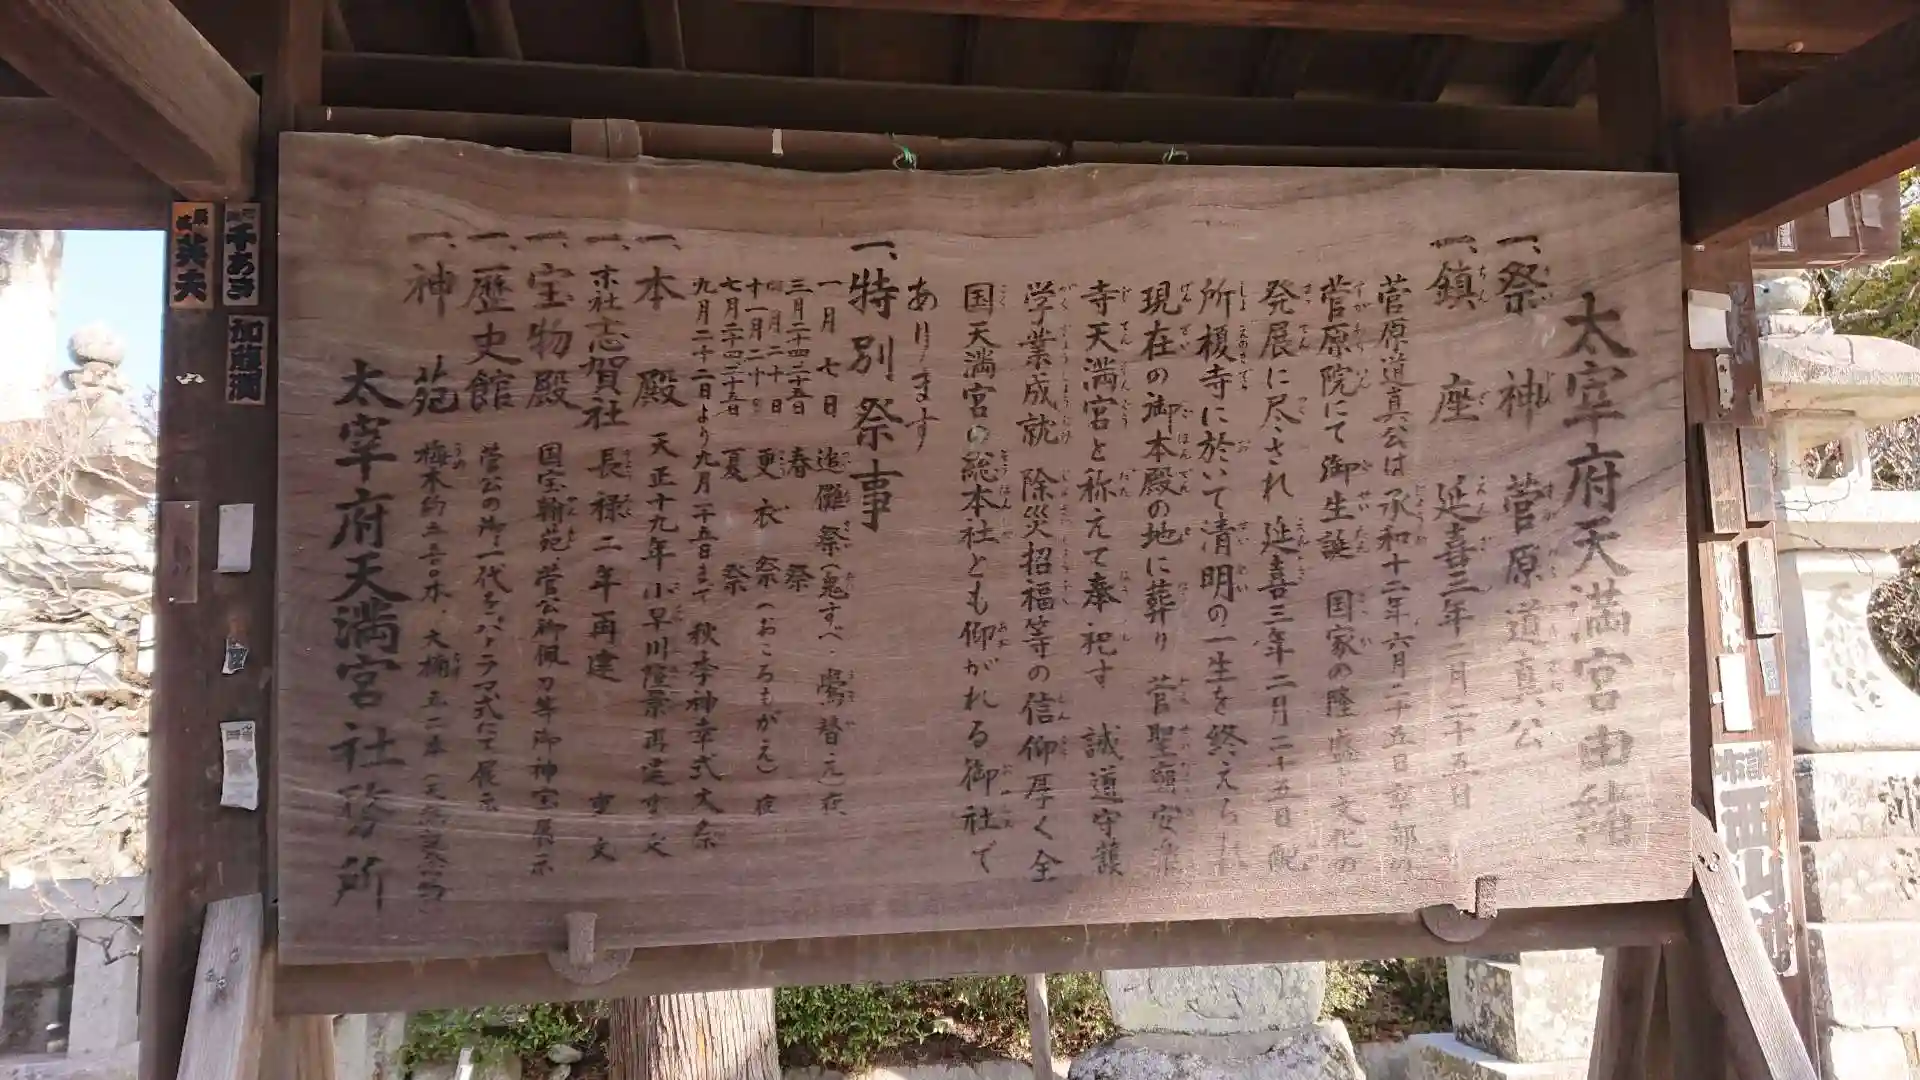 太宰府天満宮由緒
一、祭神 菅原道真公
一、鎮座 延喜三年二月二十五日
菅原道真公は承和十二年六月二十五日京都の
菅原院にて御生誕 国家の隆盛と文化の
発展に尽され 延喜三年二月二十五日 配
所榎寺に於いて清明の一生を終えられ
現在の御本殿の地に葬り 菅聖廟安楽
寺天満宮と称えて奉祀す 誠道守護
学業成就 除災招福等の信仰厚く全
国天満宮の総本社とも仰がれる御社で
あります
一、特別祭事
一月七日 追儺祭(鬼すべ・鷽替え)夜
三月二十四、二十五日 春祭
四月二十日
十一月二十日 更衣祭(おころもがえ)夜
七月二十四、二十五日 夏祭
九月二十二日より九月二十五日まで 秋季神幸式大祭
一、本殿 天正十九年 小早川隆景再建 重文
一、末社志賀社 長禄二年再建 重文
一、宝物殿 国宝翰苑 菅公御佩刀等御神宝展示
一、歴史館 菅公の御一代をパノラマ式にて展示
一、神苑 梅木約 大樟 (天然記念物)
太宰府天満宮社務所
千あき
加藤潤